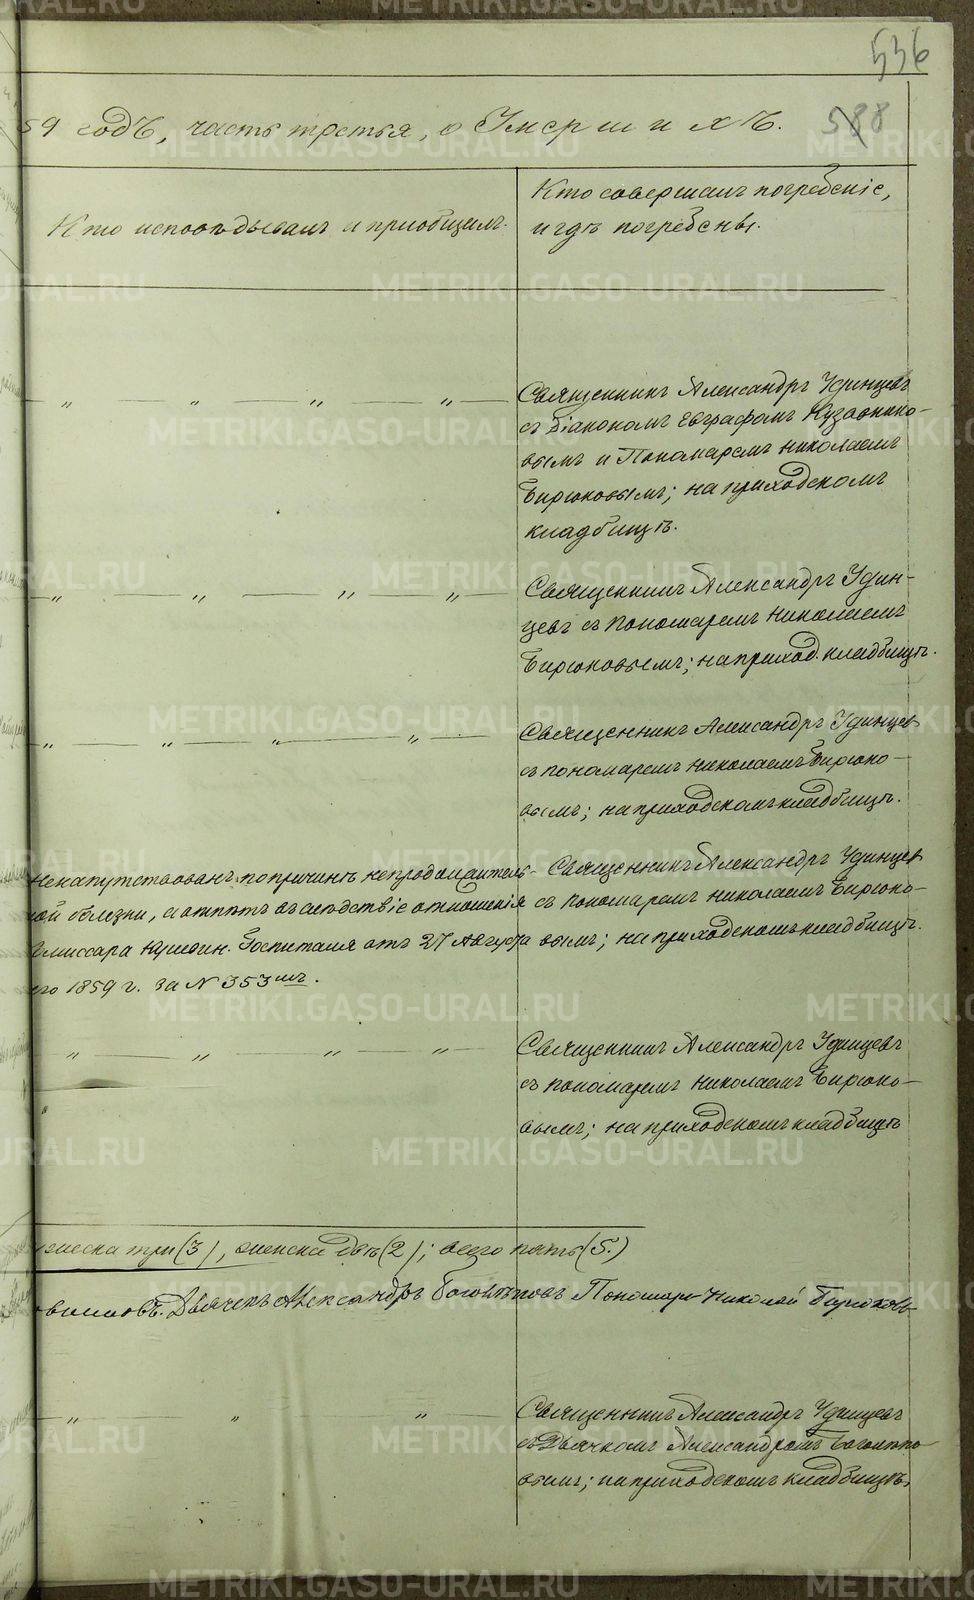 536
59 годъ, часть третья, о Умершихъ. 588
Кто исповѣдывалъ и пріобщилъ.
Кто совершалъ погребеніе,
и гдѣ погребены.
Священникъ Александръ Удинцевъ
съ Діакономъ Евграфомъ Кузовнико-
вымъ и Пономаремъ Николаемъ
Бирюковымъ; на приходскомъ
кладбищѣ.
Священникъ Александръ Удин-
цевъ съ Пономаремъ Николаемъ
Бирюковымъ; на приход. кладбищѣ.
Священникъ Александръ Удинцев
съ пономаремъ Николаемъ Бирюко-
вымъ; на приходскомъ кладбищѣ.
Ненапутствованъ по причинѣ непродолжитель-
ной болѣзни, а отпѣтъ въ слѣдствіе отношенія
Госпиталя отъ 27 Августа
1859 г. за N 353мъ.
Священникъ Александръ Удинцев
съ Пономаремъ Николаемъ Бирюко-
вымъ; на приходскомъ кладбищѣ.
Священникъ Александръ Удинцевъ
съ пономаремъ Николаемъ Бирюко-
вымъ; на приходскомъ кладбищѣ
три (3), женска двѣ (2); всего пять (5.)
Дьячекъ Александръ Боголѣповъ Пономарь Николай Бирюковъ
Священникъ Александръ Удинцевъ
съ Дьячкомъ Александромъ Боголѣпо-
вымъ; на приходскомъ кладбищѣ.
METRIKI.GASO-URAL.RU